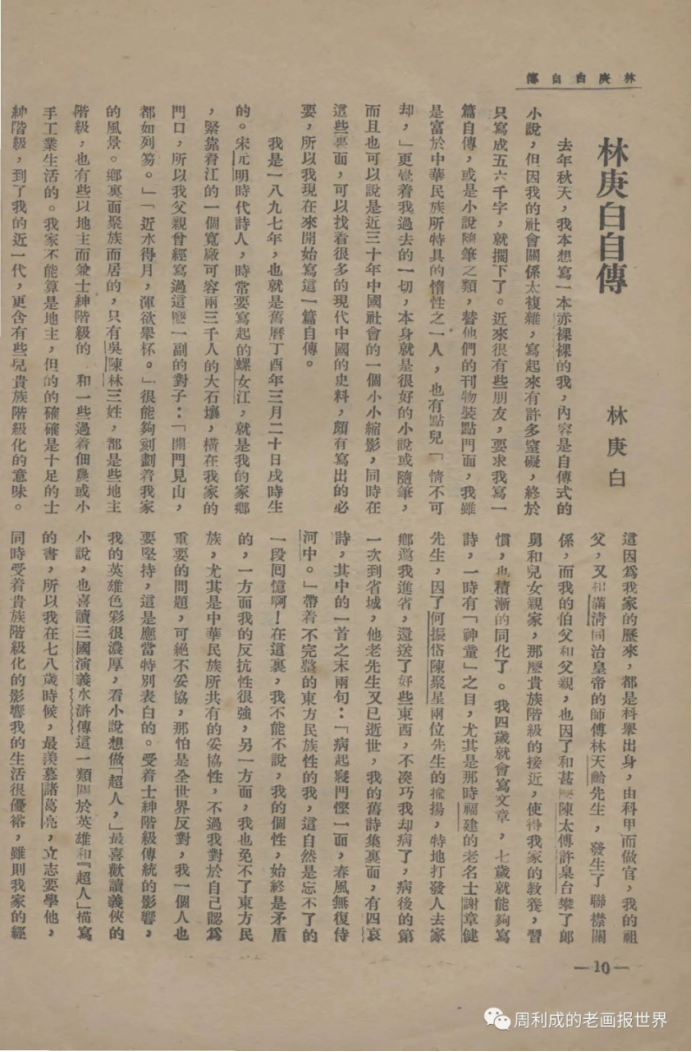 林庚白自傳
林庚白自傳
林庚白
去年秋天，我本想寫一本赤裸裸的我，內容是自傳式的
小說，但因我的社會關係太複雜，寫起來有許多窒礙，終於
只寫成五六千字，就擱下了。近來很有些朋友，要求我寫一
篇自傳，或是小說隨筆之類，替他們的刊物裝點門面，我雖
是富於中華民族所特具的惰性之一人，也有點兒「情不可
却，」更覺着我過去的一切，本身就是很好的小說或隨筆，
而且也可以說是近三十年中國社會的一個小小縮影，同時在
這些裏面，可以找着很多的現代中國的史料，頗有寫出的必
要，所以我現在來開始寫這一篇自傳。
我是一八九七年，也就是舊曆丁酉年三月二十日戌時生
的。宋元明時代詩人，時常要寫起的螺女江，就是我的家鄉
，緊靠着江的一個寬廠可容兩三千人的大石壤，橫在我家的
門口，所以我父親曾經寫過這麼一副的對子：「開門見山，
都如列笏。」「近水得月，渾欲舉杯。」很能夠刻劃着我家
的風景。鄉裏面聚族而居的，只有吳陳林三姓，都是些地主
階級，也有些以地主而兼士紳階級的　和一些過着佃農或小
手工業生活的。我家不能算是地主，但的的確確是十足的士
紳階級，到了我的近一代，更含有些兒貴族階級化的意味。
這因爲我家的歷來，都是科舉出身，由科甲而做官，我的祖
父，又和滿清同治皇帝的師傅林天齡先生，發生了聯襟關
係，而我的伯父和父親，也因了和甚麼陳太傅許臬台攀了郎
舅和兒女親家，那麼貴族階級的接近，使得我家的教養，習
慣，也積漸的同化了。我四歲就會寫文章，七歲就能夠寫
詩，一時有「神童」之目，尤其是那時福建的老名士謝章健
先生，因了何振岱陳聚星兩位先生的揄揚，特地打發人去家
鄉邀我進省，還送了好些東西，不湊巧我却病了，病後的第
一次到省城，他老先生又已逝世，我的舊詩集裏面，有四哀
詩，其中的一首之末兩句：「病起寢門慳一面，春風無復侍
河中。」帶着不完整的東方民族性的我，這自然是忘不了的
一段回憶啊！在這裏，我不能不說，我的個性，始終是矛盾
的，一方面我的反抗性很強，另一方面，我也免不了東方民
族，尤其是中華民族所共有的妥協性，不過我對於自己認爲
重要的問題，可絕不妥協，那怕是全世界反對，我一個人也
要堅持，這是應當特別表白的。受着士紳階級傳統的影響，
我的英雄色彩很濃厚，看小說想做「超人，」最喜歡讀義俠的
小說，也喜讀三國演義水滸傳這一類關於英雄和『超人」描寫
的書，所以我在七八歲時候，最羨慕諸葛亮，立志要學他，
同時受着貴族階級化的影響我的生活很優裕，雖則我家的經
—10—
周利成的老画报世界